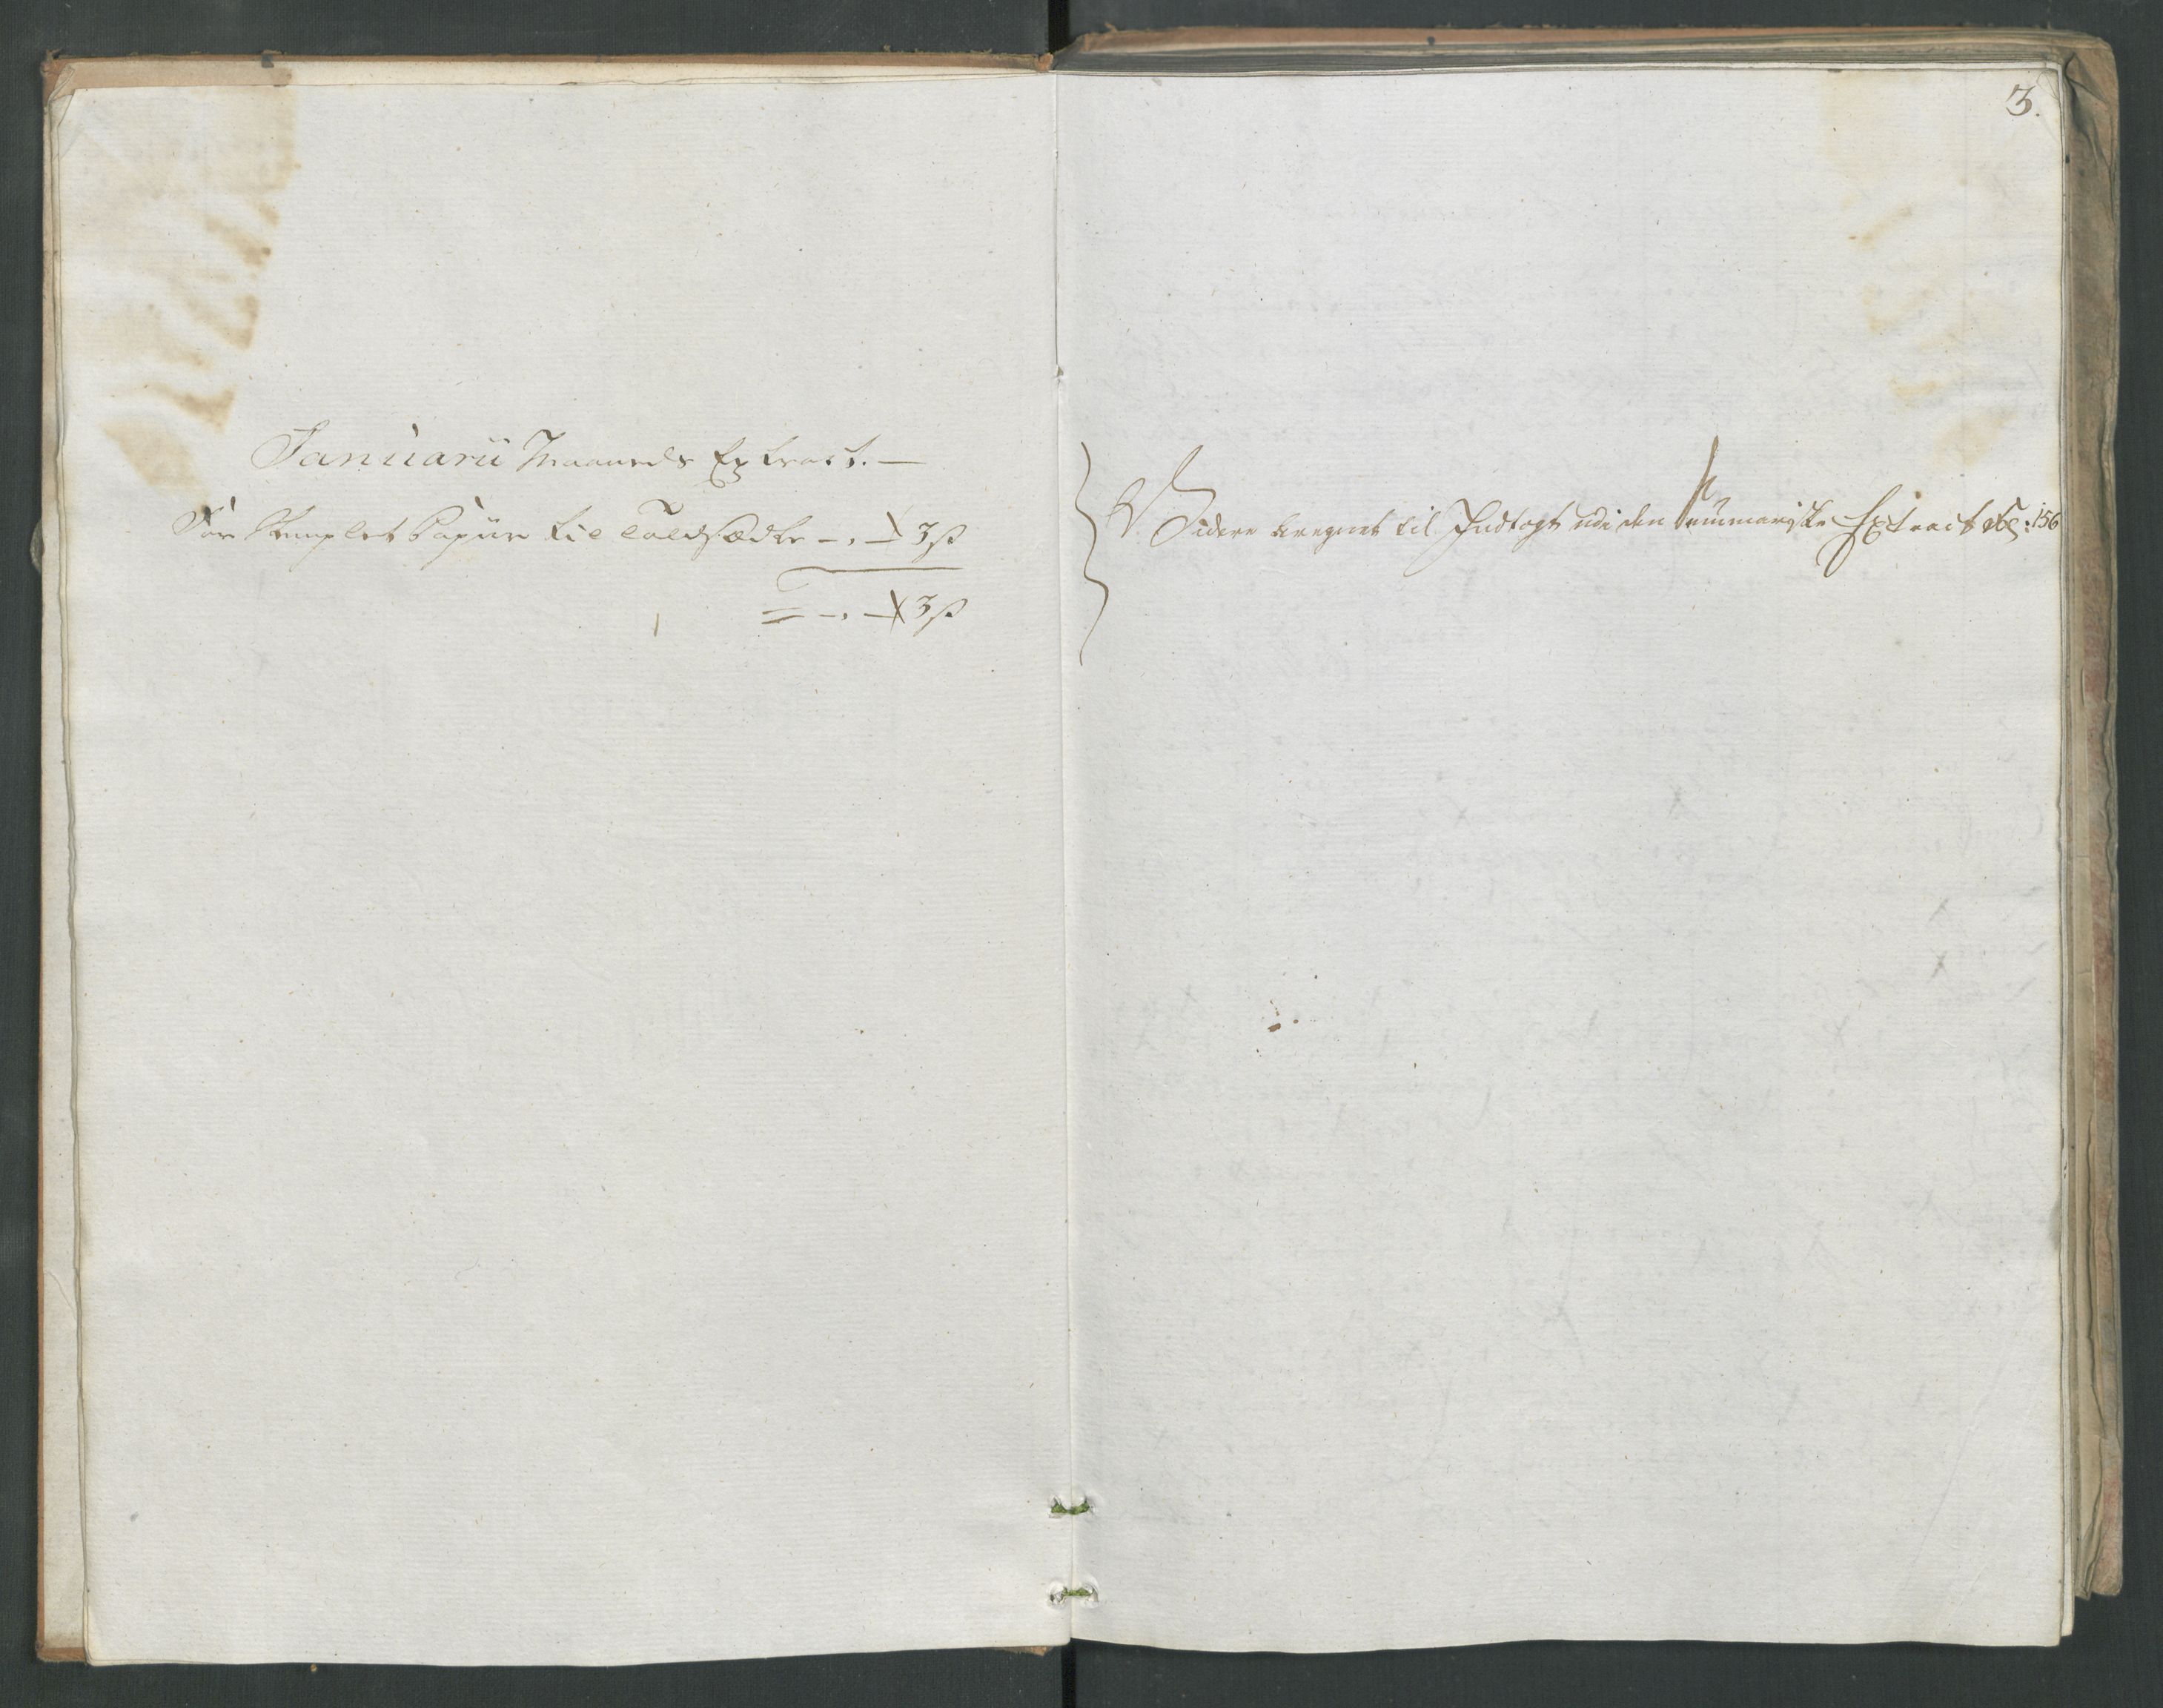 3.
Januarii Maaneds Extract. —
For Stemplet Papiir til Toldsædle — . — 3 ß
= — . — 3 ß
Videre beregnet til Indtægt udi den summariske Extract fol: 156